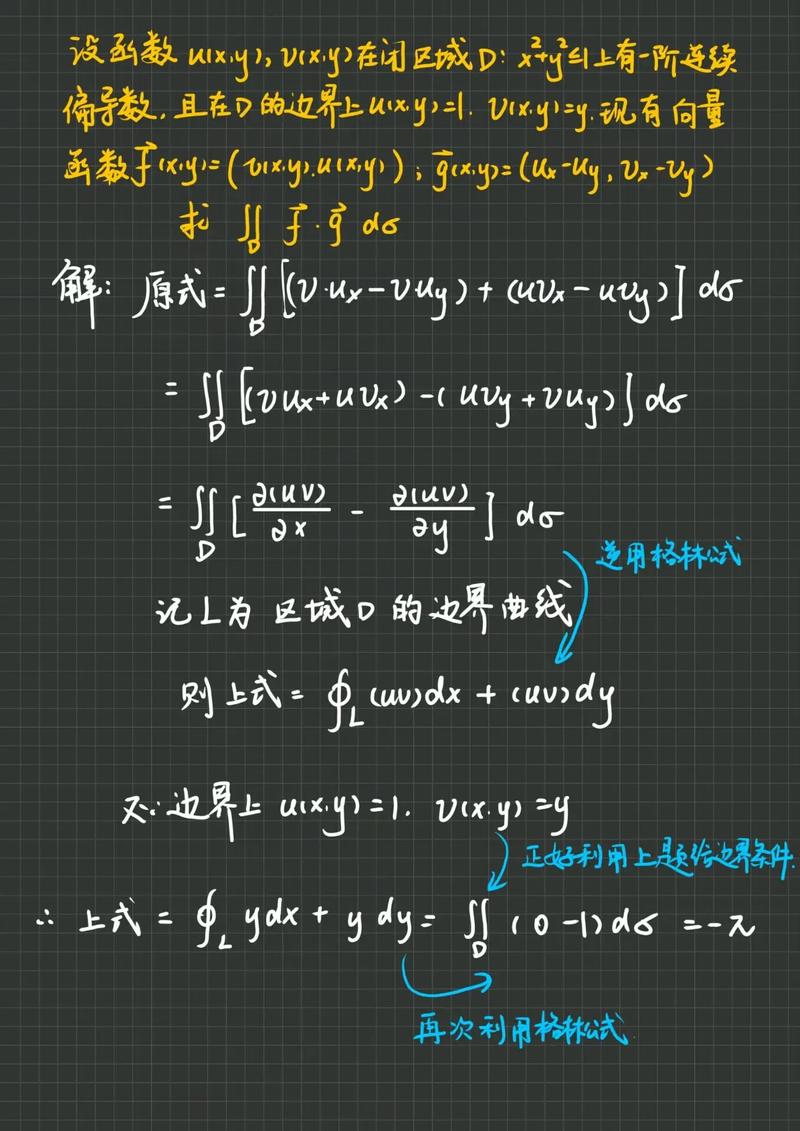 设函数 u(x,y), v(x,y)在闭区域D: x²+y²≤1上有一阶连续
偏导数, 且在D的边界上u(x,y)=1. v(x,y)=y. 现有向量
函数f⃗(x,y)=(v(x,y),u(x,y)); g⃗(x,y)=(uₓ-u_y, vₓ-v_y)
求 ∬_D f⃗·g⃗ dσ
解: 原式=∬_D [(v·uₓ-vu_y)+(uvₓ-uv_y)] dσ
=∬_D [(vuₓ+uvₓ)-(uv_y+vu_y)] dσ
=∬_D [∂(uv)/∂x - ∂(uv)/∂y] dσ
逆用格林公式
记L为区域D的边界曲线
则上式=∮_L (uv)dx+(uv)dy
又∵边界上 u(x,y)=1. v(x,y)=y
正好利用上题给边界条件.
∴上式=∮_L ydx+y dy=∬_D (0-1)dσ=-π
再次利用格林公式.